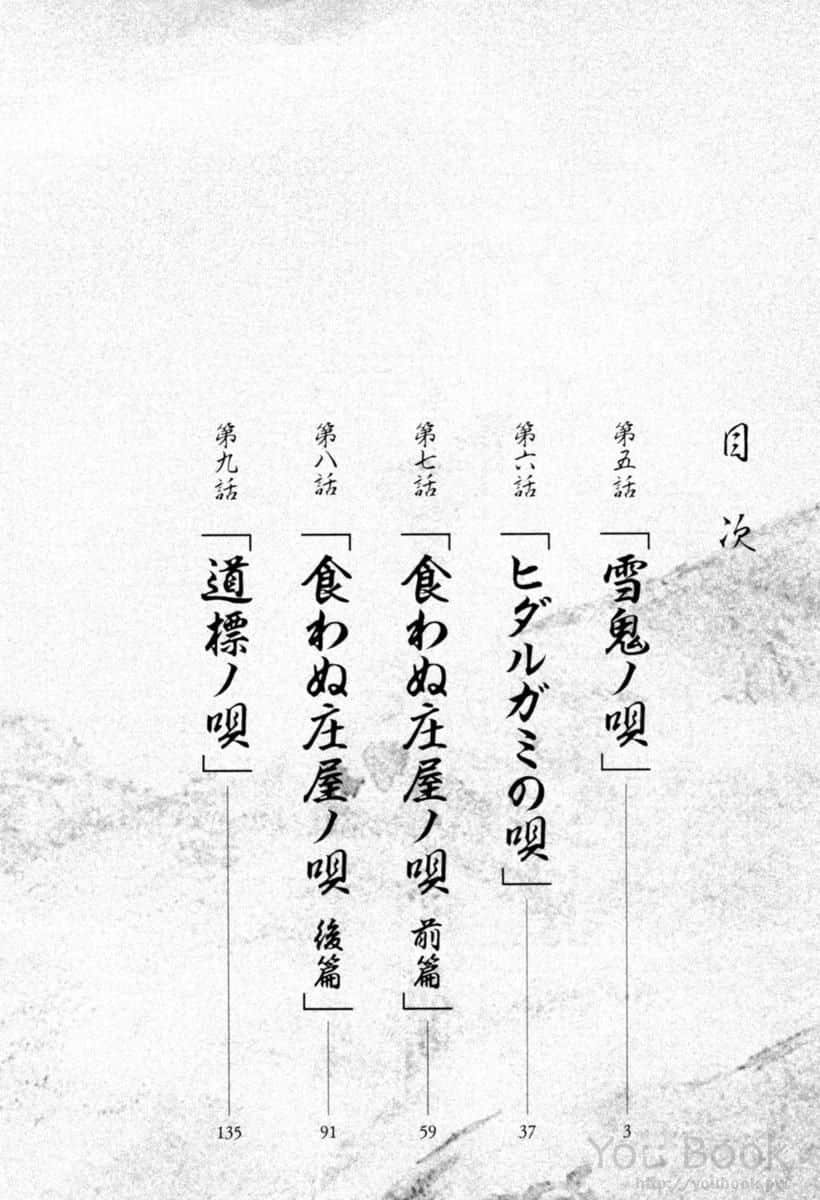 目次
第五話「雪鬼ノ唄」3
第六話「ヒダルガミの唄」37
第七話「食わぬ庄屋ノ唄 前篇」59
第八話「食わぬ庄屋ノ唄 後篇」91
第九話「道標ノ唄」135
You Book
http://youbook.pw